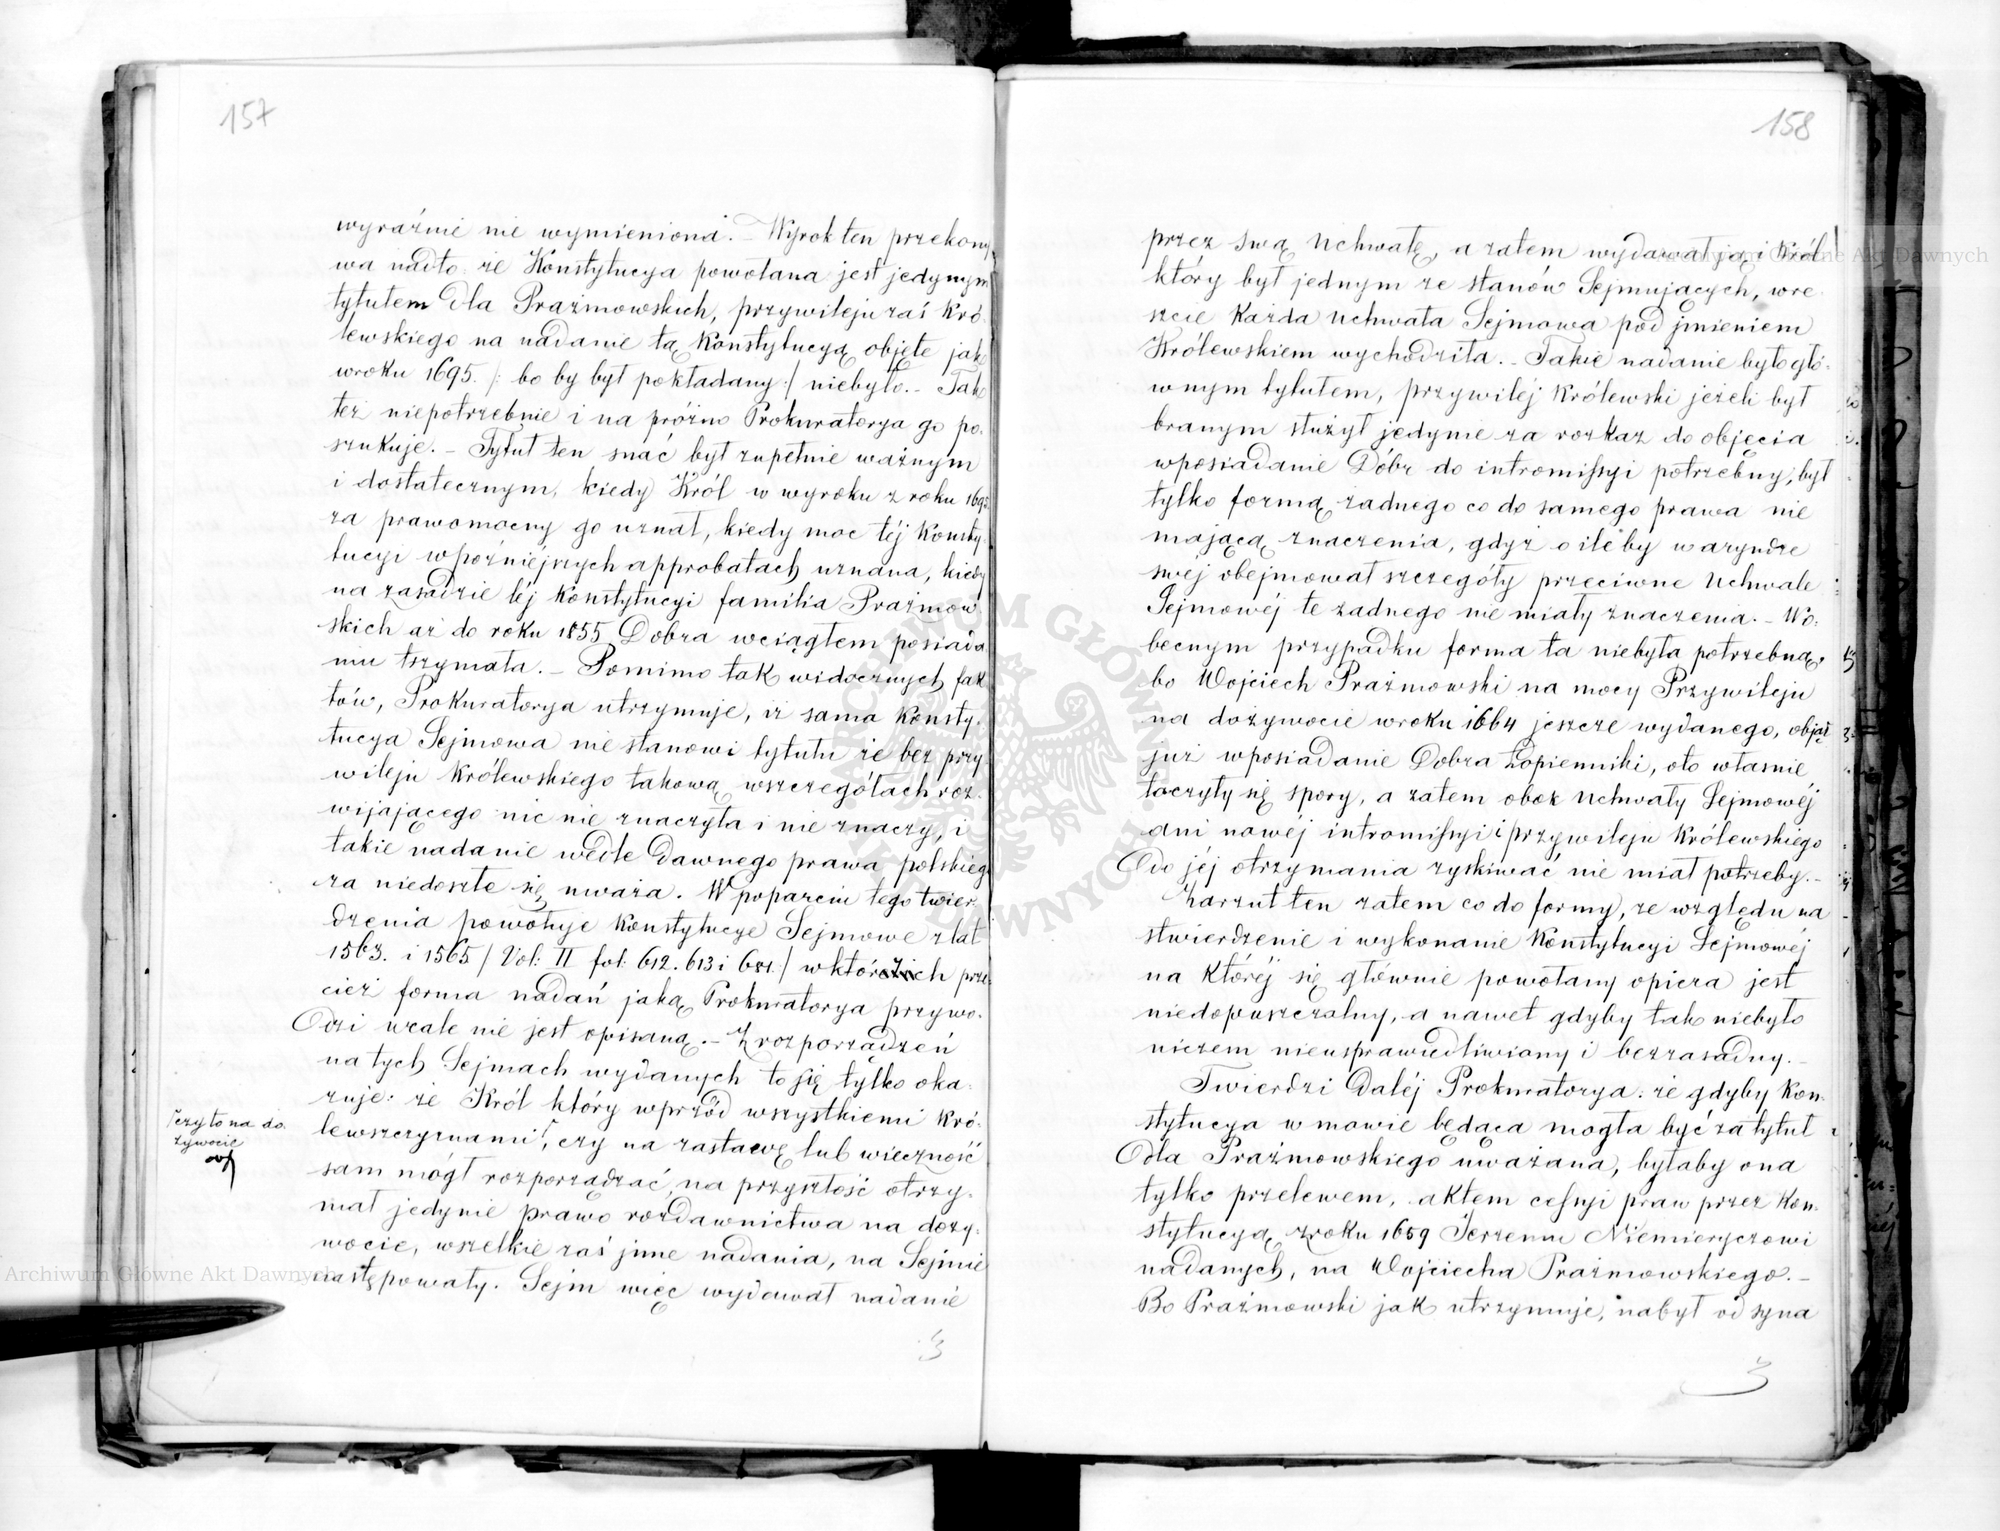 157
wyraźnie nie wymienioną. – Wyrok ten przekony
wa nadto: że Konstytucya powołana jest jedynym
tytułem dla Prażmowskich, przywileju zaś Kró-
lewskiego na nadanie tą Konstytucyą objęte jak
wroku 1695. /: bo by był pokładany :/ niebyło. – Tak
też niepotrzebnie i na próżno Prokuratorya go po-
szukuje. – Tytuł ten snać był zupełnie ważnym
i dostatecznym, kiedy Król w wyroku z roku 1695
za prawomocny go uznał, kiedy moc téj Konsty-
tucyi wpóźniejszych approbatach uznana, kiedy
na zasadzie téj Konstytucyi familia Prażmow
skich aż do roku 1855 Dobra wciągłem posiada
niu trzymała. – Pomimo tak widocznych fak
tów, Prokuratorya utrzymuje, iż sama Konsty-
tucya Sejmowa nie stanowi tytułu że bez przy
wileju Królewskiego takową wszczegółach roz-
wijającego nic nie znaczyła i nie znaczy, i
takie nadanie wedle dawnego prawa polskieg
za niedoszłe się uważa. W poparciu tego twier-
dzenia powołuje Konstytucye Sejmowe z lat
1563. i 1565 /Vol: II fol: 612. 613 i 681:/ w których prze-
cież forma nadań jaką Prokuratorya przywo-
dzi wcale nie jest opisaną. – Z rozporządzeń
na tych Sejmach wydanych to się tylko oka-
zuje: że Król który wprzód wszystkiemi Kró-
lewszczyznami, czy na zastawę lub wieczność
czy to na do
żywocie
sam mógł rozporządzać, na przyszłość otrzy-
mał jedynie prawo rozdawnictwa na doży-
wocie, wszelkie zaś jnne nadania, na Sejmie
następowały. Sejm więc wydawał nadanie
3
158
przez swą Uchwałę, a zatem wydawał ją i Król
który był jednym ze stanów Sejmujących, wre-
szcie Każda Uchwała Sejmowa pod jmieniem
Królewskiem wychodziła. – Takie nadanie było głó-
wnym tytułem, przywiléj Królewski jeżeli był
branym służył jedynie za rozkaz do objęcia
wposiadanie Dóbr do intromissyi potrzebny, był
tylko formą żadnego co do samego prawa nie
mającą znaczenia, gdyż o ileby w aryndze
swéj obejmował szczegóły przeciwne Uchwale
Sejmowéj te żadnego nie miały znaczenia. – Wo-
becnym przypadku forma ta niebyła potrzebną,
bo Wojciech Prażmowski na mocy Przywileju
na dożywocie wroku 1664 jeszcze wydanego, objął
już wposiadanie Dobra Łopienniki, oto własnie
toczyły się spory, a zatem obok Uchwały Sejmowéj
ani nowéj intromissyi i przywileju Królewskiego
do jéj otrzymania zyskiwać nie miał potrzeby. –
Zarzut ten zatem co do formy, ze względu na
stwierdzenie i wykonanie Konstytucyi Sejmowéj
na któréj się głównie powołany opiera jest
niedopuszczalny, a nawet gdyby tak niebyło
niczem nieusprawiedliwiony i bezzasadny. –
Twierdzi daléj Prokuratorya: że gdyby Kon-
stytucya w mowie będąca mogła być za tytuł
dla Prażmowskiego uważana, byłaby ona
tylko przelewem, aktem cessyi praw przez Kon-
stytucyą zroku 1659 Jerzemu Niemieryczowi
nadanych, na Wojciecha Prażmowskiego. –
Bo Prażmowski jak utrzymuje, nabył od syna
3